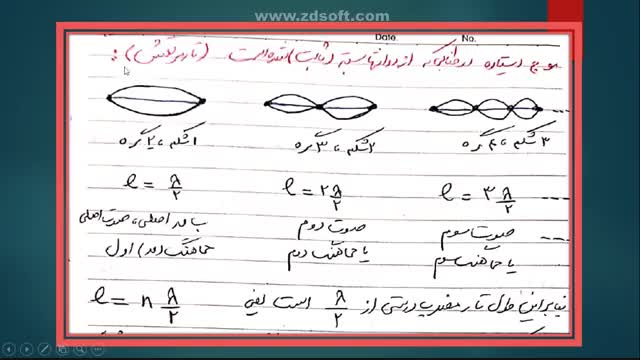 www.zdsoft.com
Date. No.
موج ایستاده در طنابی که از دو انتها بسته (ثابت) شده است (تار مرتعش) :
۱ شکم، ۲ گره ۲ شکم، ۳ گره ۳ شکم، ۴ گره
l = λ/۲ l = ۲ λ/۲ l = ۳ λ/۲
یا مد اصلی، صوت اصلی صوت دوم صوت سوم
هماهنگ (مد) اول یا هماهنگ دوم یا هماهنگ سوم
بنابراین طول تار مضرب درستی از λ/۲ است یعنی l = n λ/۲